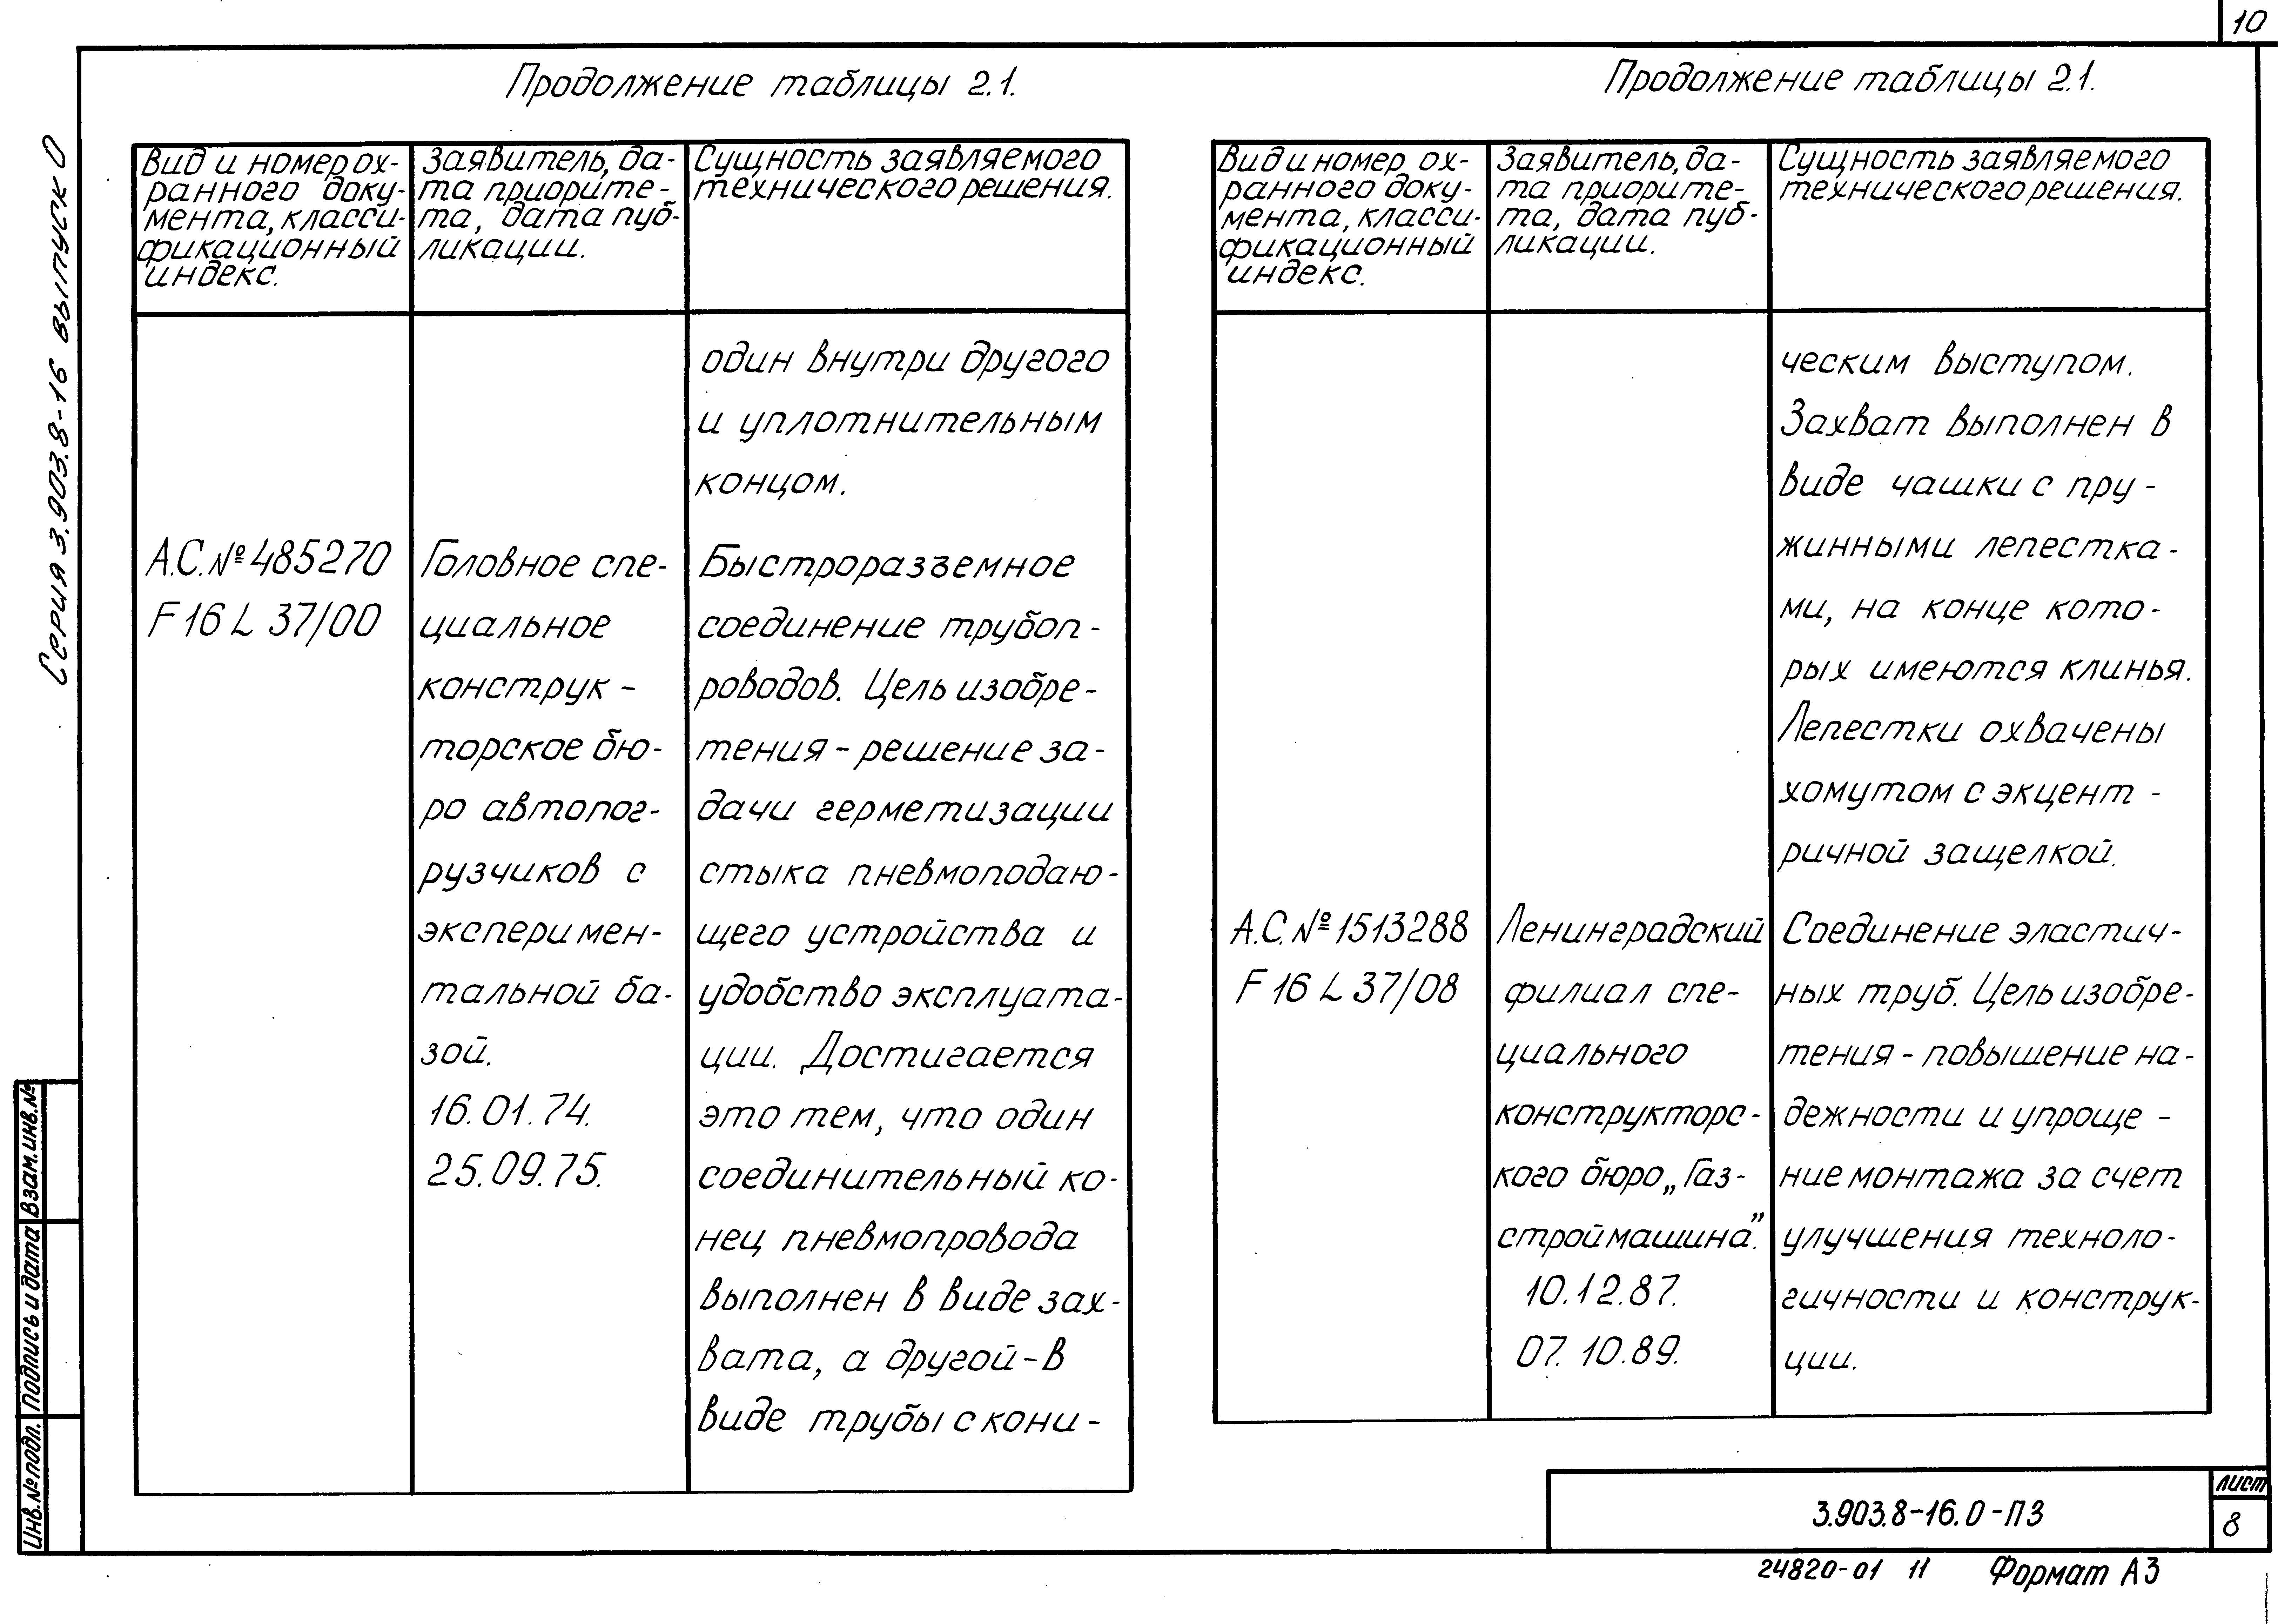 10
Серия 3.903.8-16 выпуск 0
Продолжение таблицы 2.1.
Вид и номер ох-
ранного доку-
мента, класси-
фикационный
индекс.
Заявитель, да-
та приорите-
та, дата пуб-
ликации.
Сущность заявляемого
технического решения.
один внутри другого
и уплотнительным
концом.
А.С. № 485270
F 16 L 37/00
Головное спе-
циальное
конструк-
торское бю-
ро автопог-
рузчиков с
эксперимен-
тальной ба-
зой.
16.01.74.
25.09.75.
Быстроразъемное
соединение трубоп-
роводов. Цель изобре-
тения - решение за-
дачи герметизации
стыка пневмоподаю-
щего устройства и
удобство эксплуата-
ции. Достигается
это тем, что один
соединительный ко-
нец пневмопровода
выполнен в виде зах-
вата, а другой - в
виде трубы с кони-
Продолжение таблицы 2.1.
Вид и номер ох-
ранного доку-
мента, класси-
фикационный
индекс.
Заявитель, да-
та приорите-
та, дата пуб-
ликации.
Сущность заявляемого
технического решения.
ческим выступом.
Захват выполнен в
виде чашки с пру-
жинными лепестка-
ми, на конце кото-
рых имеются клинья.
Лепестки охвачены
хомутом с эксцент-
ричной защелкой.
А.С. № 1513288
F 16 L 37/08
Ленинградский
филиал спе-
циального
конструкторс-
кого бюро „Газ-
строймашина”.
10.12.87.
07.10.89.
Соединение эластич-
ных труб. Цель изобре-
тения - повышение на-
дежности и упроще-
ние монтажа за счет
улучшения техноло-
гичности и конструк-
ции.
Взам. инв. №
Подпись и дата
Инв. № подл.
3.903.8-16.0-ПЗ
лист
8
24820-01 11 Формат А3